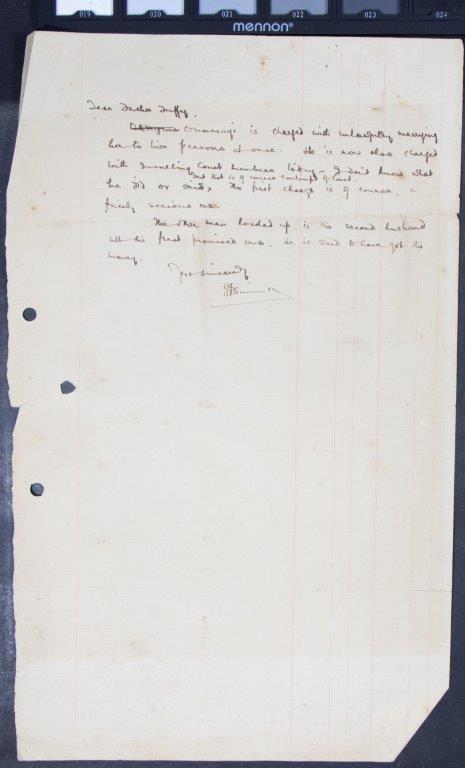 019 020 021 022 023 024
mennon®
Dear Father Duffy,
Onunaji is charged with unlawfully marrying
her to two persons at once. He is now also charged
with insulting Court members today - I don't know what
but that is of course contempt of Court.
he did or said, The first charge is of course, a
fairly serious one.
The other man handed up is the second husband
not the first promised one. He is said to have got the
money.
Yrs sincerely